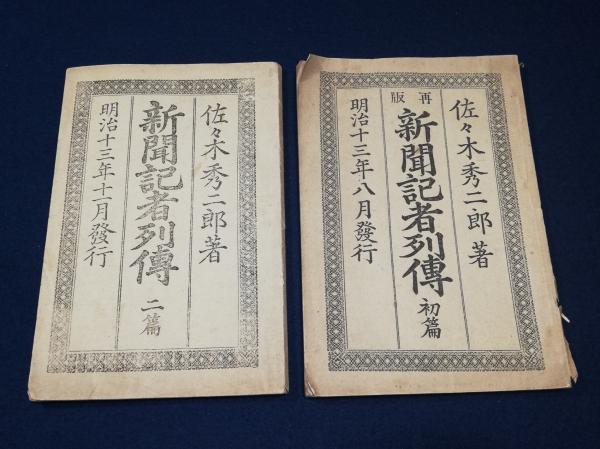 佐々木秀二郎著
再版
新聞記者列傳初篇
明治十三年八月發行
佐々木秀二郎著
新聞記者列傳二篇
明治十三年十一月發行